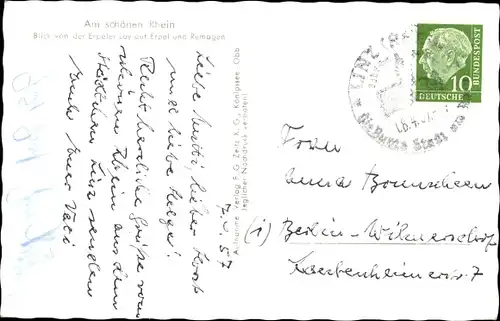 Am schönen Rhein
Blick von der Erpeler Ley auf Erpel und Remagen
7.4.57
Liebe Mutti, lieber
und liebe Helga!
Recht herzliche Grüße vom
schönen Rhein aus dem
Städtchen Linz senden
Euch Euer Vati
Aufnahme Verlag E. G. Zeitz K. G., Königsee-Obb
Jeglicher Nachdruck verboten!
LINZ
Die Bunte Stadt am
DEUTSCHE
BUNDESPOST
10
Frau
Anna
(1) Berlin-Wilmersdorf
7